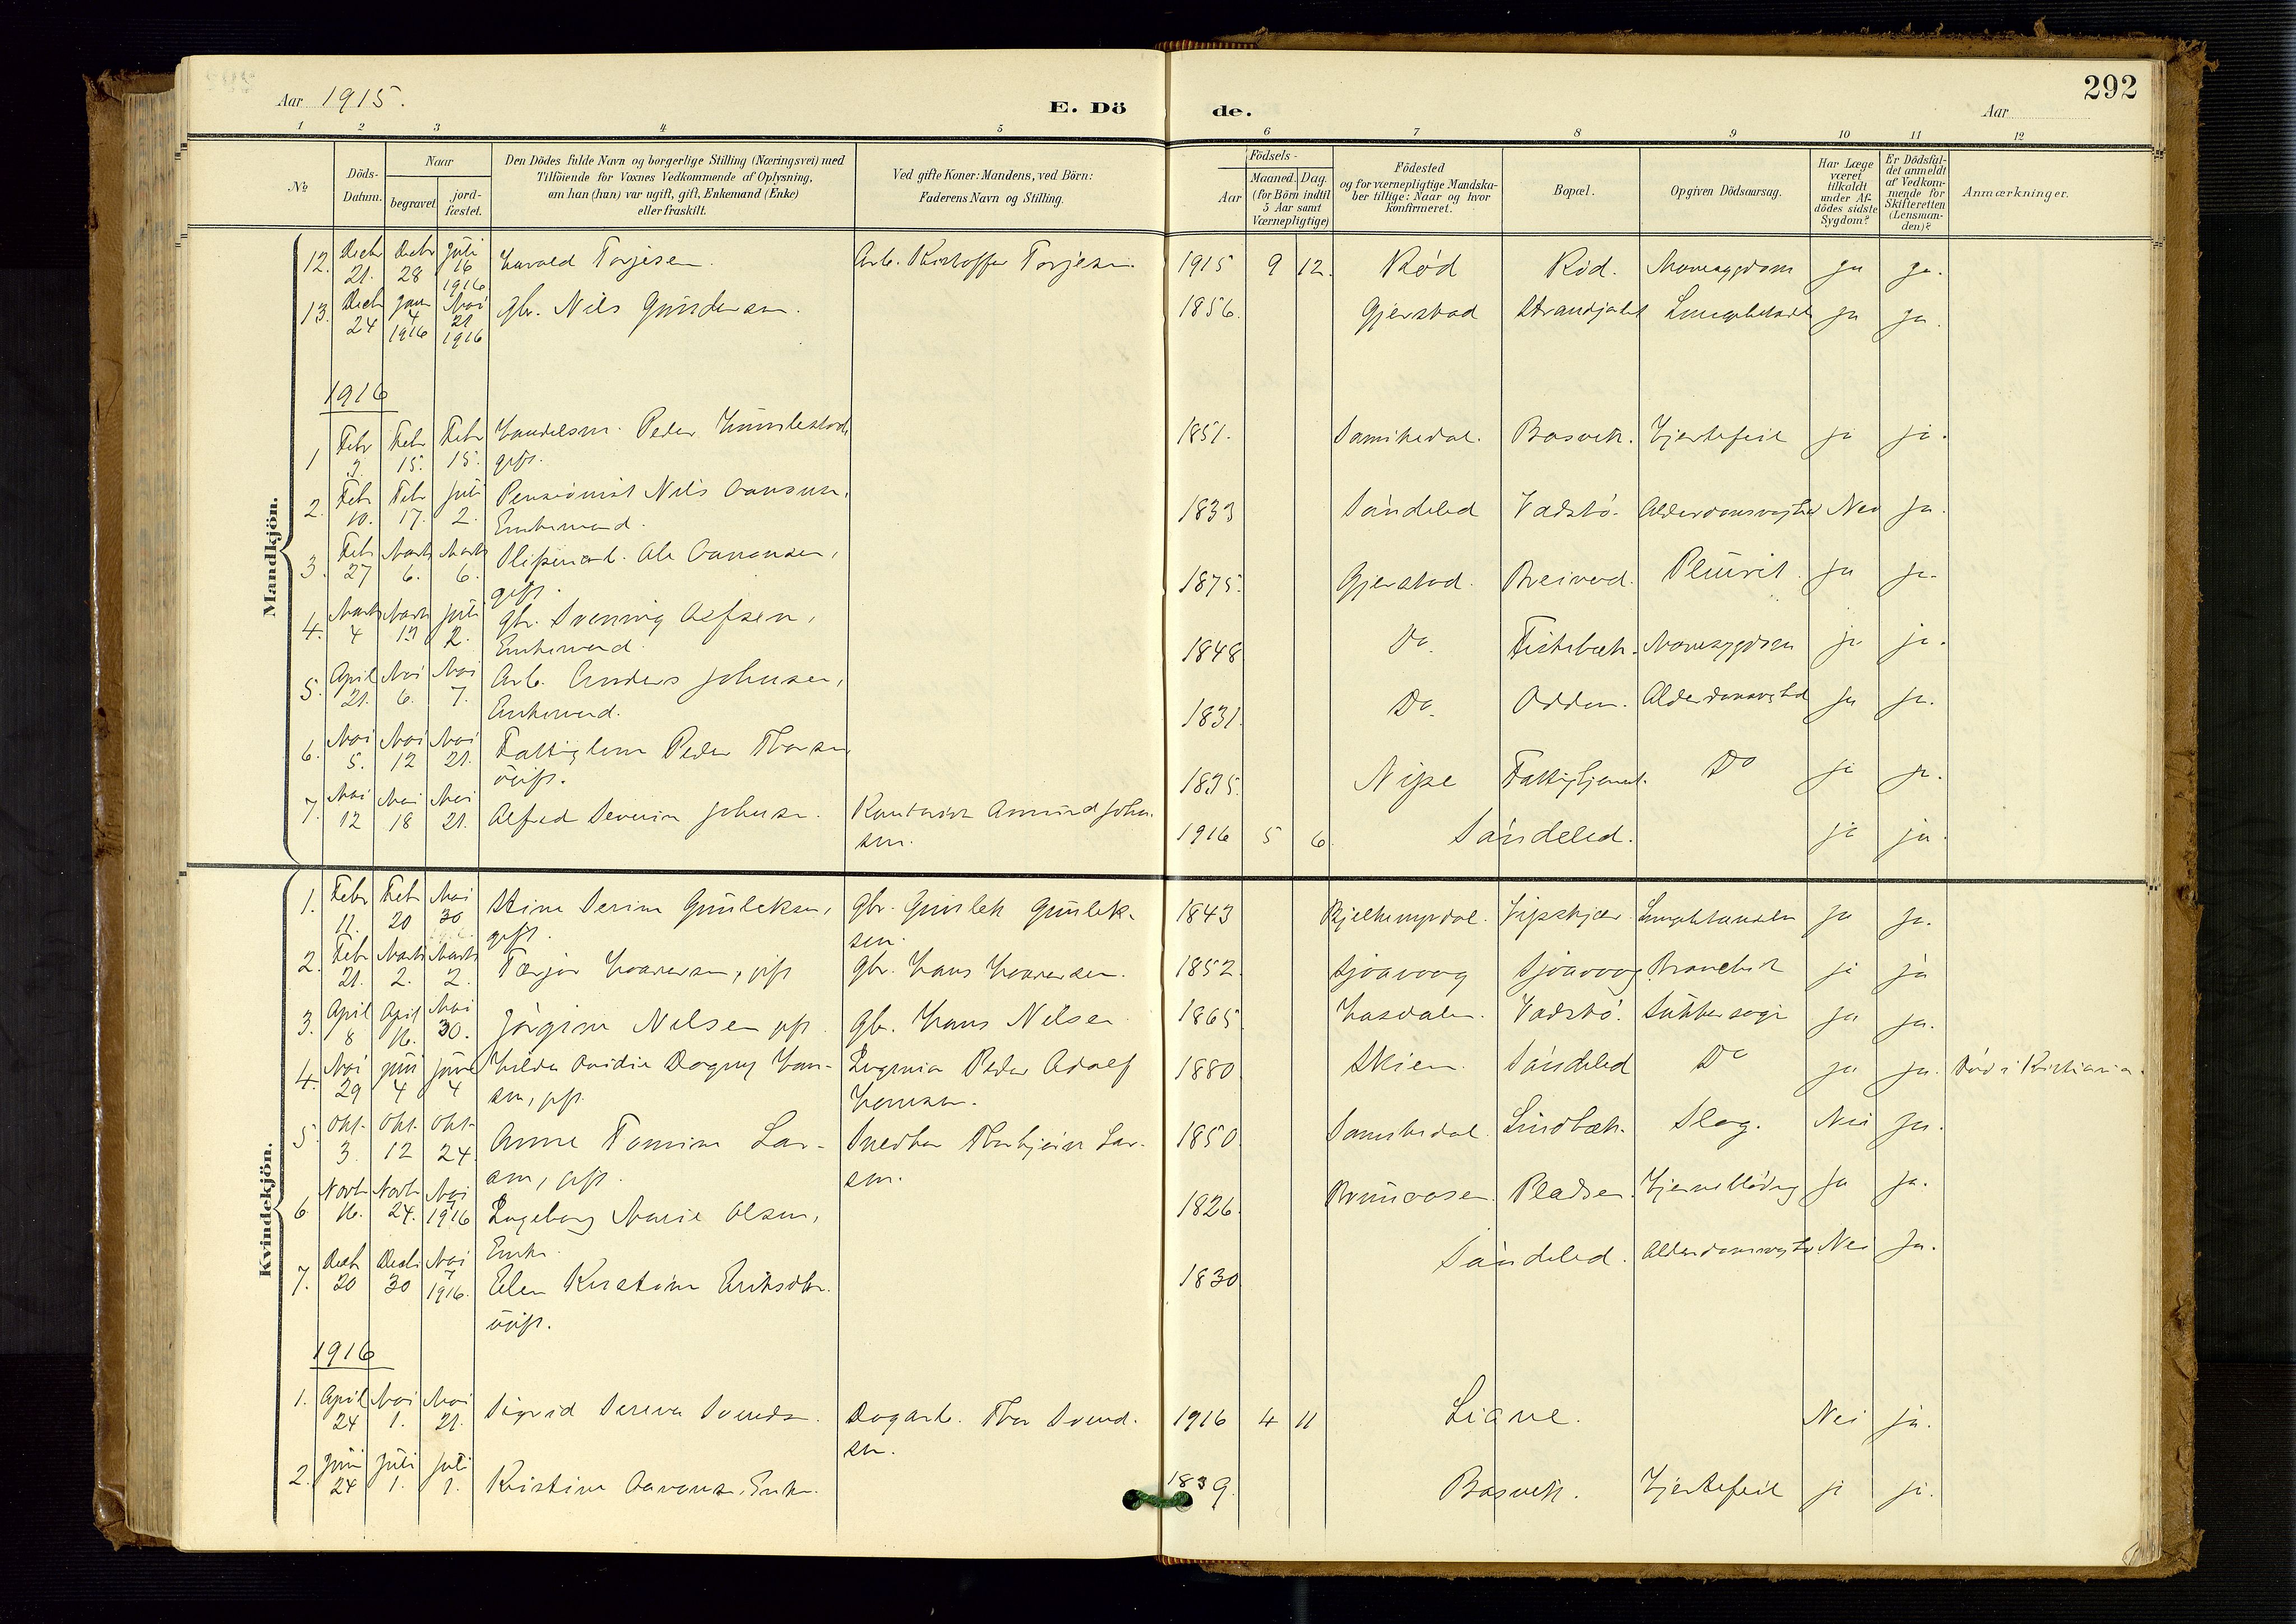 292
Aar 1915.
E. Dö de.
Aar
1 2 3 4 5 6 7 8 9 10 11 12
No
Döds-Datum.
Naar
begravet
jord-fæstet.
Den Dödes fulde Navn og borgerlige Stilling (Næringsvei) med
Tilföiende for Voxnes Vedkommende af Oplysning,
om han (hun) var ugift, gift, Enkemand (Enke)
eller fraskilt.
Ved gifte Koner: Mandens, ved Börn:
Faderens Navn og Stilling.
Födsels-
Aar
Maaned. Dag.
(for Börn indtil
5 Aar samt
Værnepligtige)
Födested
og for værnepligtige Mandska-
ber tillige: Naar og hvor
konfirmeret.
Bopæl.
Opgiven Dödsaarsag.
Har Læge
været
tilkaldt
under Af-
dödes sidste
Sygdom?
Er Dödsfal-
det anmeldt
af Vedkom-
mende for
Skifteretten
(Lensman-
den)?
Anmærkninger.
Mandkjön.
12. Decbr 21. Decbr 28 Juli 16 1916 Harald Torjesen. Arb. Kristoffer Torjesen 1915 9 12. Röd Röd. Mavesygdom ja ja.
13. Decb 24 Jan 4 1916 Mai 21 1916 Gbr. Nils Gundersen. 1856. Gjerstad ja ja.
1916
1 Febr 3. Febr 15. Febr 15. Handelsm. Peder Humlestad, 1851. Sannikedal. Bosvik. Hjertefeil ja ja.
gift.
2. Febr 10. Febr 17. Juli 2. Pensionist Nils Aansen, 1833 Söndeled Vadstö. Alderdomssvaghed Nei ja.
Enkemand.
3. Febr 27 Marts 6. Marts 6. Ole Aanonsen, 1875. Gjerstad. Breivad. Pleurit. ja ja.
gift.
4. Marts 4 Marts 13 Juli 2. Gbr. Svenning Olefsen, 1848 Do. Fiskebæk. Mavesygdom ja ja.
Enkemand.
5. April 21. Mai 6. Mai 7. Arb. Anders Johnsen, 1831. Do. Odden. Alderdomssvaghed ja ja.
Enkemand.
6. Mai 5. Mai 12 Mai 21. Fattiglem Peder Thorsen, 1835. Nipe Fattighjemmet. Do ja ja.
ugift.
7. Mai 12 Mai 18 Mai 21. Alfred Severin Johnsen. Amund John- 1916 5 6 Söndeled. ja ja.
sen.
Kvindekjön.
1. Febr 11. Febr 20 Mai 30 Stine Serine Gunleksen, Gbr. Gunlek Gunlek- 1843 ja ja.
gift. sen.
2. Febr 21. Marts 2. Marts 2. Tarjer Haaversen, gift Gbr. Hans Haaversen. 1852. Sjöavaag Sjöavaag Bronchit ja ja
3. April 8 April 16. Mai 30. Jörgine Nilsen gift. Gbr. Hans Nilsen 1865 Hasdalen. Vadstö. Sukkersyge ja ja.
4. Mai 29 Juni 4 Juni 4 Hilda Ovidie Dagny Han- Peder Adolf 1880 Skien. Söndeled Do ja ja. Död i Kristiania.
sen, gift. Hansen.
5. Okt. 3. Okt. 12 Okt. 24. Anne Tomine Lar- Snedker Thorbjörn Lar- 1850. Sannikedal. Lindbæk. Slag. Nei ja.
sen, gift. sen.
6 Novb 16. Novb 24. Mai 7 1916 Ingeborg Marie Olsen, 1826. Bruaasen. Pladsen. Hjerneblödning ja ja.
Enke.
7. Decb 20 Decb 30 Mai 7 1916. Elen Kristine Eriksdtr. 1830 Söndeled. Alderdomssvaghed Nei ja.
ugift.
1916
1. April 24 Mai 1. Mai 21. Sigrid Serena Svendsen. Dagarb. Thor Svend- 1916 4 11 Liane. Nei ja.
sen.
2. Juni 24 Juli 1. Juli 1. Kristine Aanonsen. Enke. 1839. Bosvik. Hjertefeil ja ja.